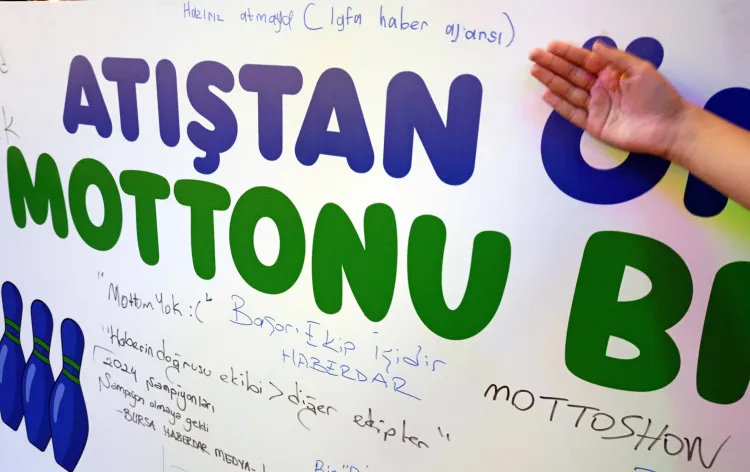 Hazırız atmaya (Igfa haber ajansı)
ATIŞTAN Ö
MOTTONU Bİ
"Mottom Yok :("
Başarı Ekip İşidir
HABERDAR
"Haberin doğrusu ekibi > diğer ekipler"
2024 Şampiyonları
Şampiyon olmaya geldi
-BURSA HABERDAR MEDYA-
MOTTOSHOW